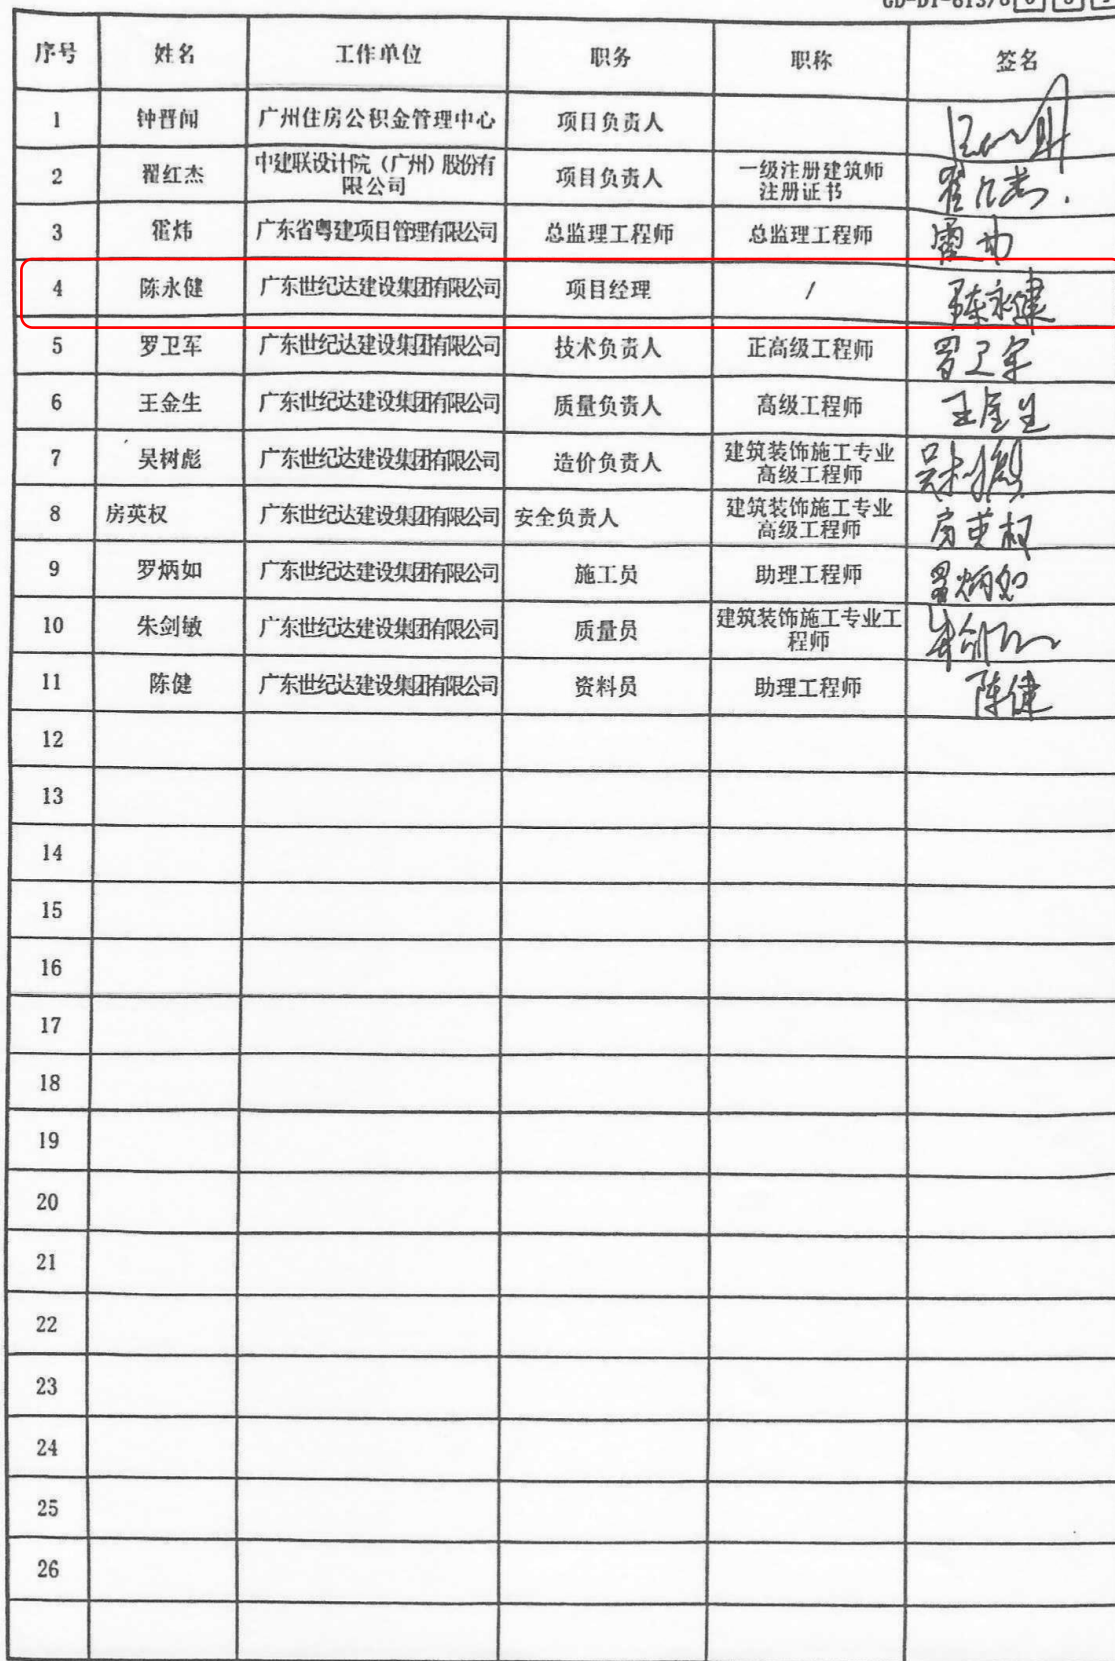 序号 姓名 工作单位 职务 职称 签名
1 钟晋闻 广州住房公积金管理中心 项目负责人
2 翟红杰 中建联设计院（广州）股份有限公司 项目负责人 一级注册建筑师注册证书
3 霍炜 广东省粤建项目管理有限公司 总监理工程师 总监理工程师
4 陈永健 广东世纪达建设集团有限公司 项目经理 / 陈永健
5 罗卫军 广东世纪达建设集团有限公司 技术负责人 正高级工程师 罗卫军
6 王金生 广东世纪达建设集团有限公司 质量负责人 高级工程师 王金生
7 吴树彪 广东世纪达建设集团有限公司 造价负责人 建筑装饰施工专业高级工程师 吴树彪
8 房英权 广东世纪达建设集团有限公司 安全负责人 建筑装饰施工专业高级工程师 房英权
9 罗炳如 广东世纪达建设集团有限公司 施工员 助理工程师 罗炳如
10 朱剑敏 广东世纪达建设集团有限公司 质量员 建筑装饰施工专业工程师 朱剑敏
11 陈健 广东世纪达建设集团有限公司 资料员 助理工程师 陈健
12
13
14
15
16
17
18
19
20
21
22
23
24
25
26